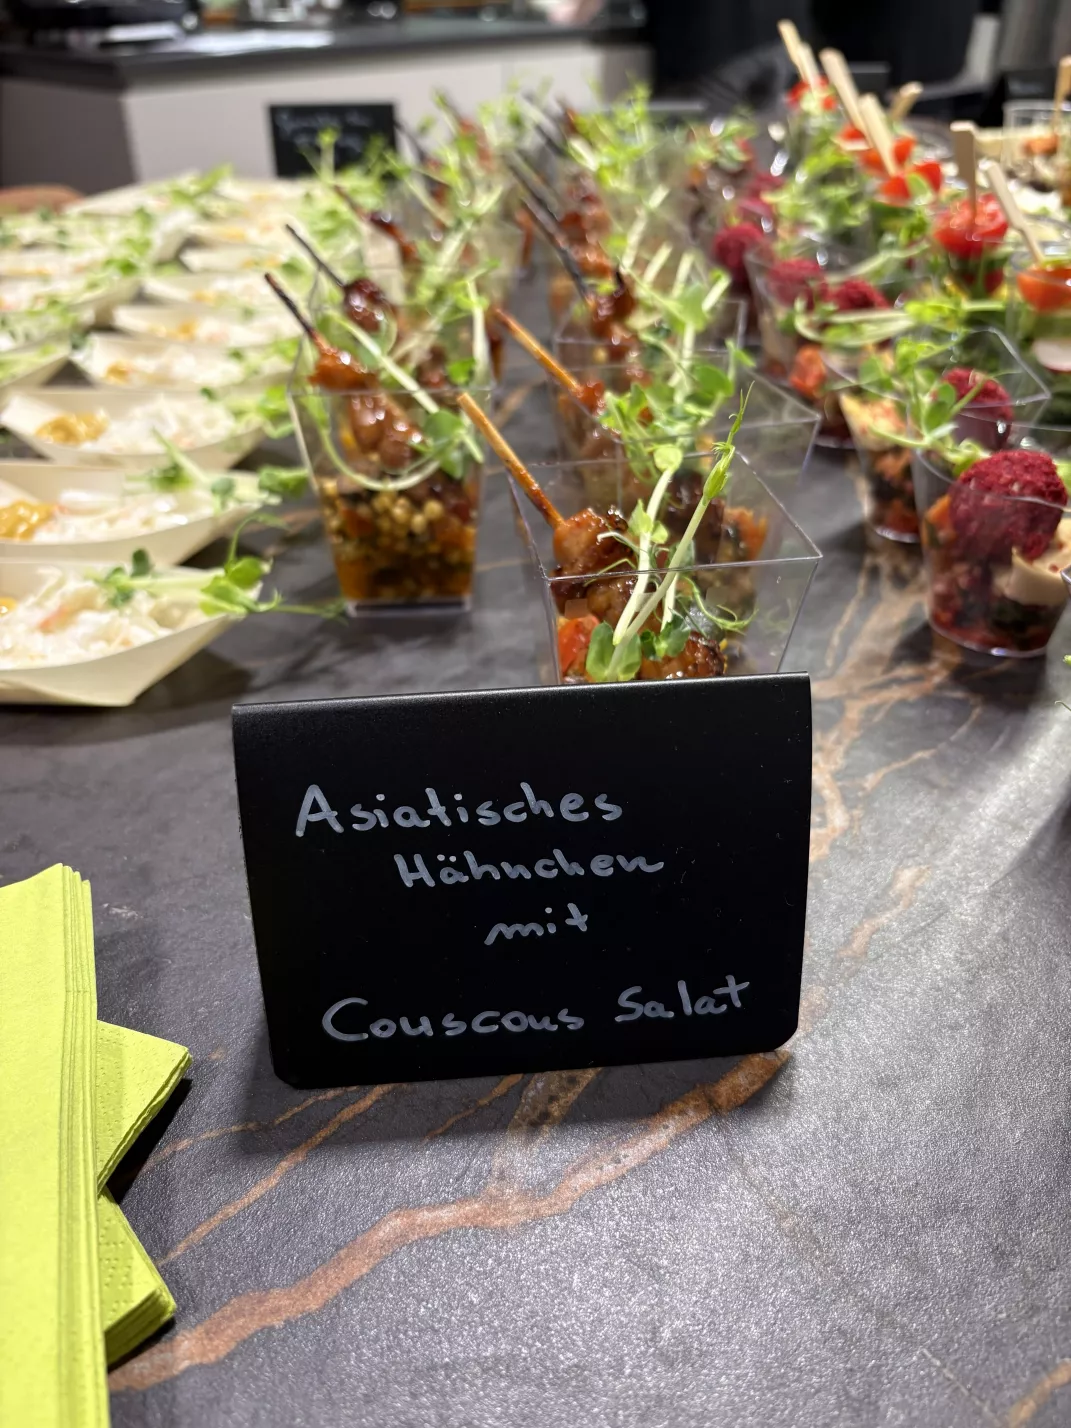 Asiatisches
Hähnchen
mit
Couscous Salat